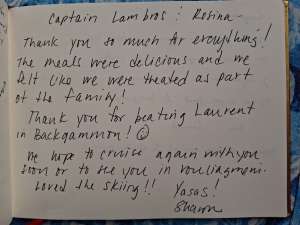 Captain Lambros & Retina -
Thank you so much for everything!
The meals were delicious and we
felt like we were treated as part
of the family!
Thank you for beating Laurent
in Backgammon!
We hope to cruise again with you
soon or to see you in Vouliagmeni.
Loved the skiing!! Yasas!
Sharon